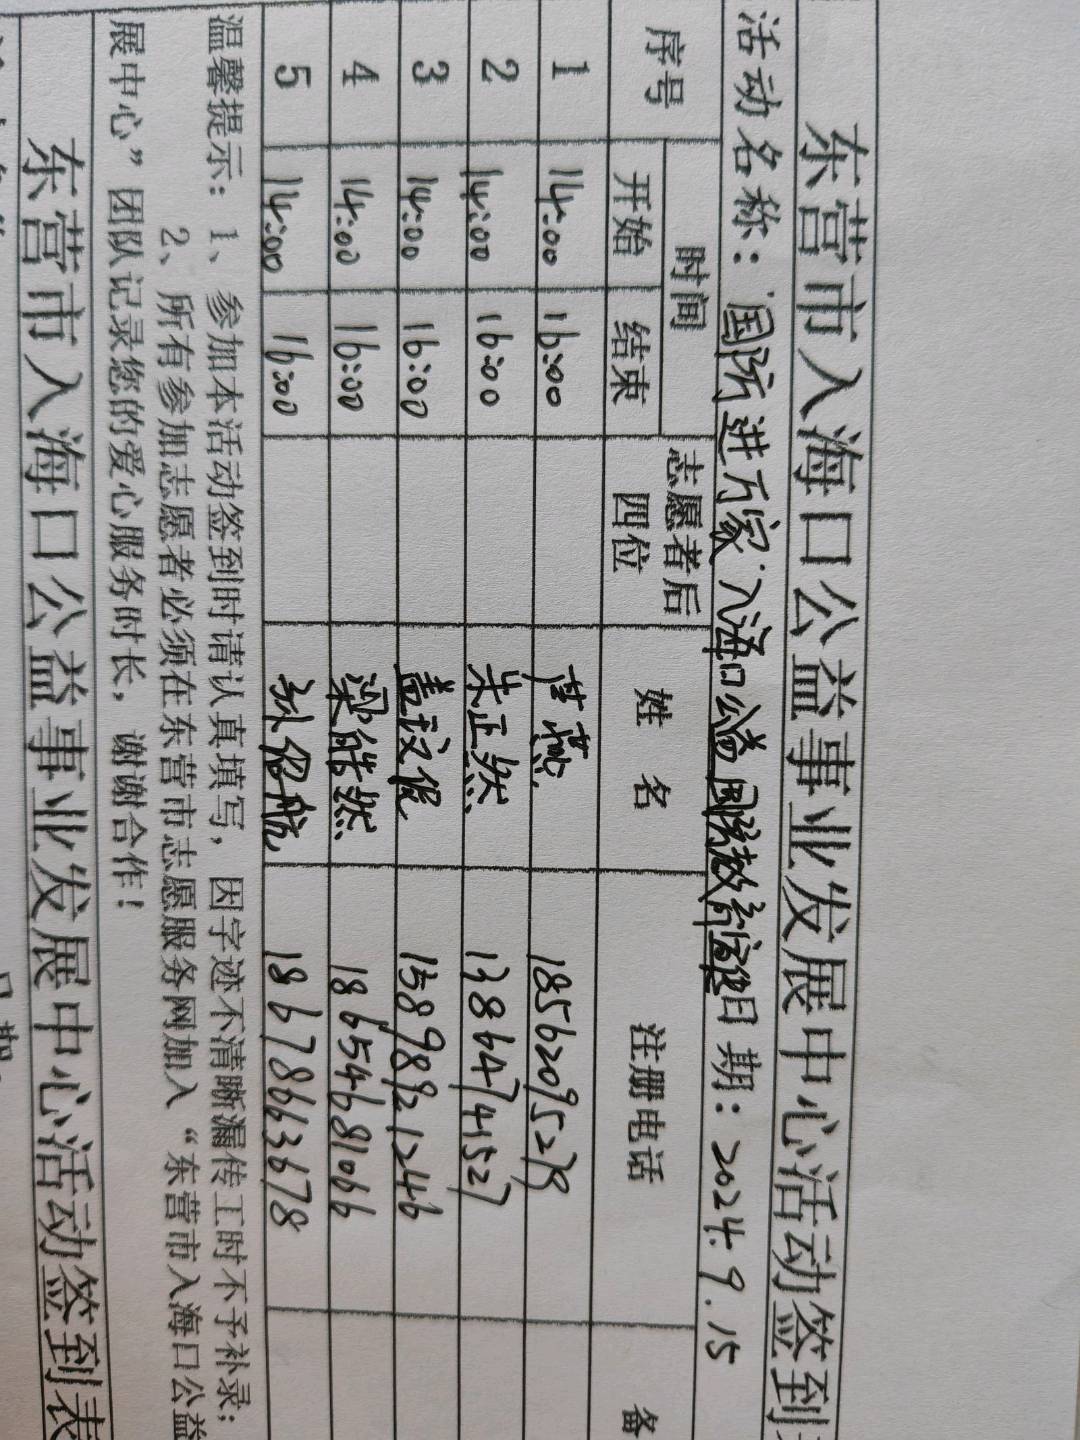 东营市入海口公益事业发展中心活动签到
活动名称：国防进万家·入海口公益国防教育宣传日期：2024.9.15
序号 时间 志愿者后四位 姓名 注册电话 备
开始 结束
1 14:00 16:00 燕 18562095278
2 14:00 16:00 朱正然 13864741527
3 14:00 16:00 盖 15898921246
4 14:00 16:00 梁皓然 18654681066
5 14:00 16:00 航 18678663678
温馨提示：1、参加本活动签到时请认真填写，因字迹不清晰漏传工时不予补录；
2、所有参加志愿者必须在东营市志愿服务网加入“东营市入海口公益
展中心”团队记录您的爱心服务时长，谢谢合作！
东营市入海口公益事业发展中心活动签到表